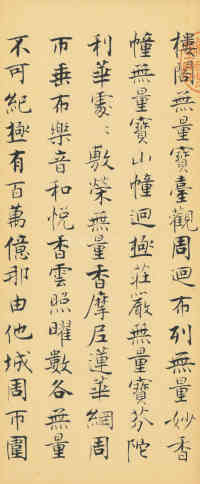 樓閣無量寶臺觀周迴布列無量妙香
幢無量寶山幢迥極莊嚴無量寶芬陀
利華處〻敷榮無量香摩尼蓮華網周
帀垂布樂音和悅香雲照曜數各無量
不可紀極有百萬億那由他城周帀圍